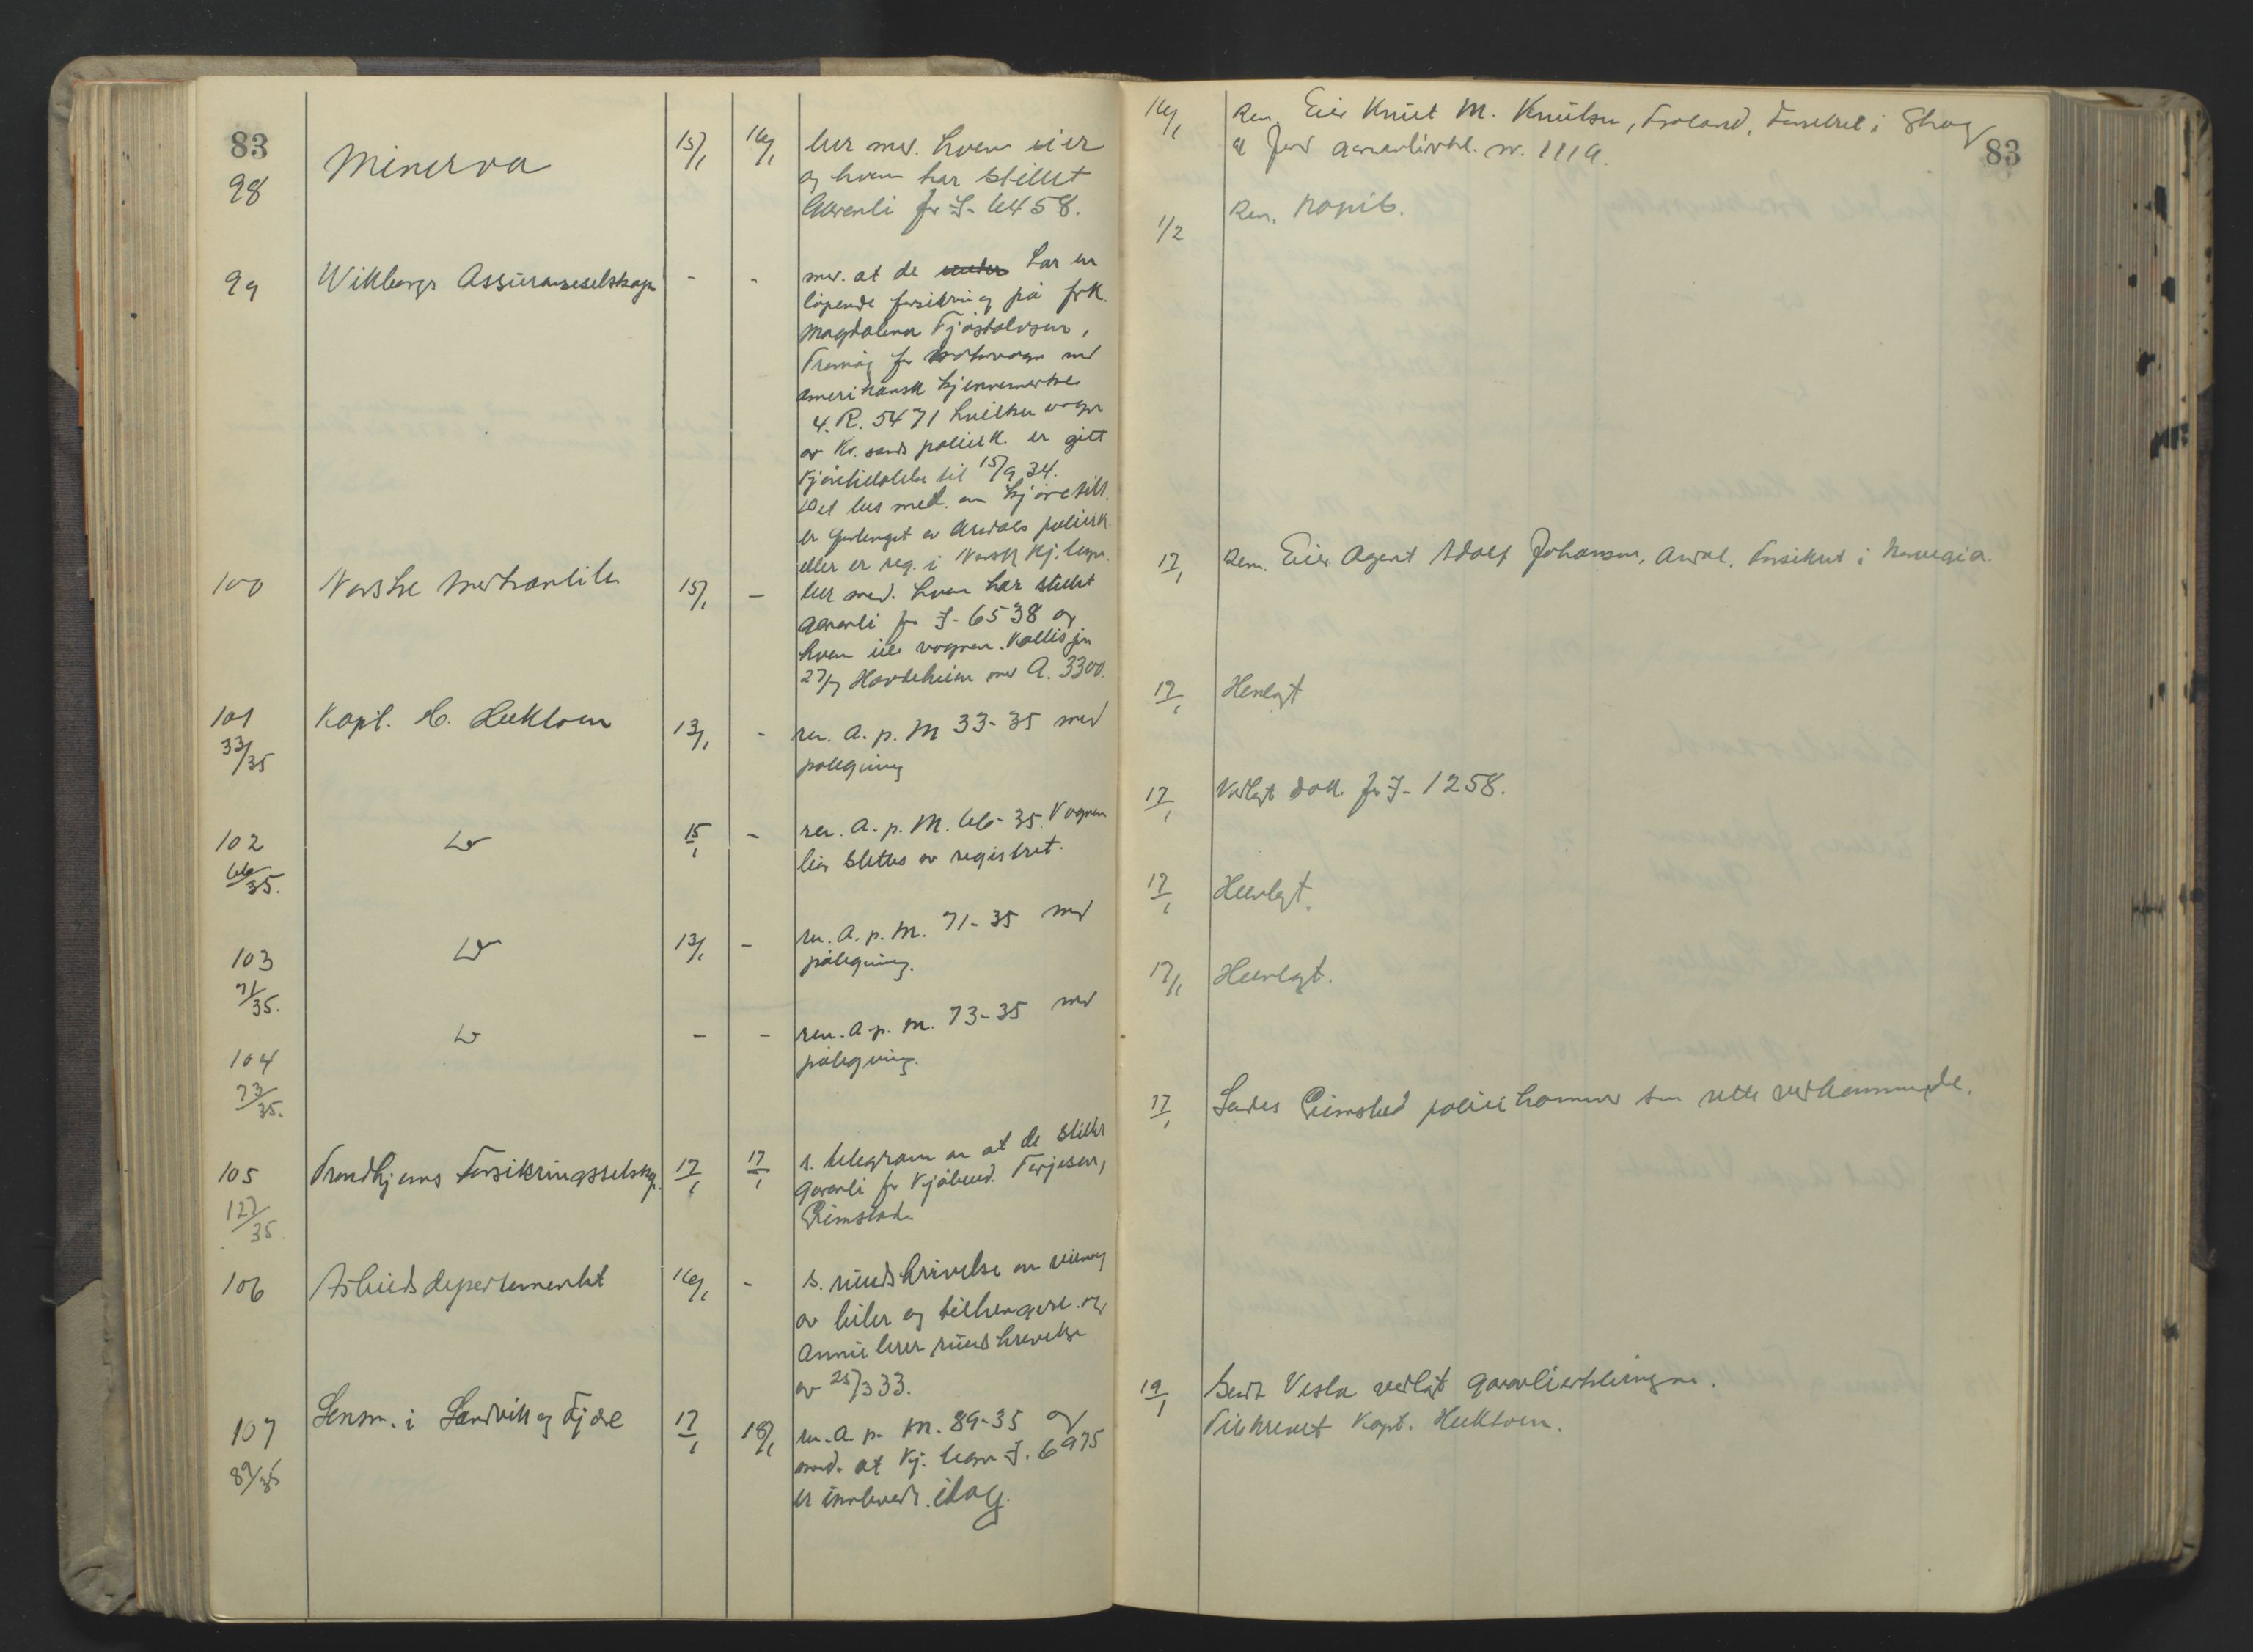 83
98 Minerva 15/1 16/1 ber med. hvem eier
og hvem har stillet
Garanti for I- 6458.
99 Wikborgs Assuranseselskap - - med. at de har en
løpende forsikring på frk.
Magdalena Fjøstolvsen,
Tromøy for motorvogn med
amerikansk kjennemerke
4. R. 5471 hvilken vogn
av Kr. sands politik. er gitt
Kjøretillatelse til 15/9 34.
Det bes med. om kjøretill.
er forlenget av Arendals politik.
eller er reg. i Norsk Kj. tegn.
100 Norske Merkantile 15/1 - ber med. hvem har stillet
garanti for I- 6538 og
hvem eier vognen. Kollisjon
27/7 med A. 3300.
101 Kapt. C. Heekloen 13/1 - ren. A. p. M 33-35 med
33/35 påtegning
102 Do 15/1 - ren. A. p. M. 66-35. Vognen
66/35. blir slettes av registret.
103 Do 13/1 - ren. A. p. M. 71-35 med
71/35. påtegning.
104 Do - - ren. A. p. M. 73-35 med
73/35. påtegning.
105 Trondhjems Forsikringsselskap. 17/1 17/1 s. telegram om at de stiller
127/35. garanti for Kjøbmd. Terjesen,
Grimstad.
106 Arbeidsdepartementet 16/1 - s. rundskrivelse om veining
av biler og tilhengere og
annulerer rundskrivelse
av 25/3 33.
107 Lensm. i Landvik og Fjære 17/1 18/1 ren. A. p. M. 89-35 og
89/35 med. at Kj. tegn I. 6975
er innlevert idag.
83
16/1 Ren. Eier Knut M. Knutsen, Froland, Forsikret i Skog
og Jord garantierkl. nr. 1119.
1/2 Ren. Kopib.
17/1 Rem. Eier Agent Adolf Johansen, Arendal, Forsikret i Norvegia.
17/1 Henlagt
17/1 Vedlagt dok. for I- 1258.
17/1 Henlagt.
17/1 Henlagt.
17/1 Sendes Grimstad politikammer som rette vedkommende.
19/1 Sendt Vesta vedlagt garantierklæringen.
Tilskrevet Kapt. Heekloen.